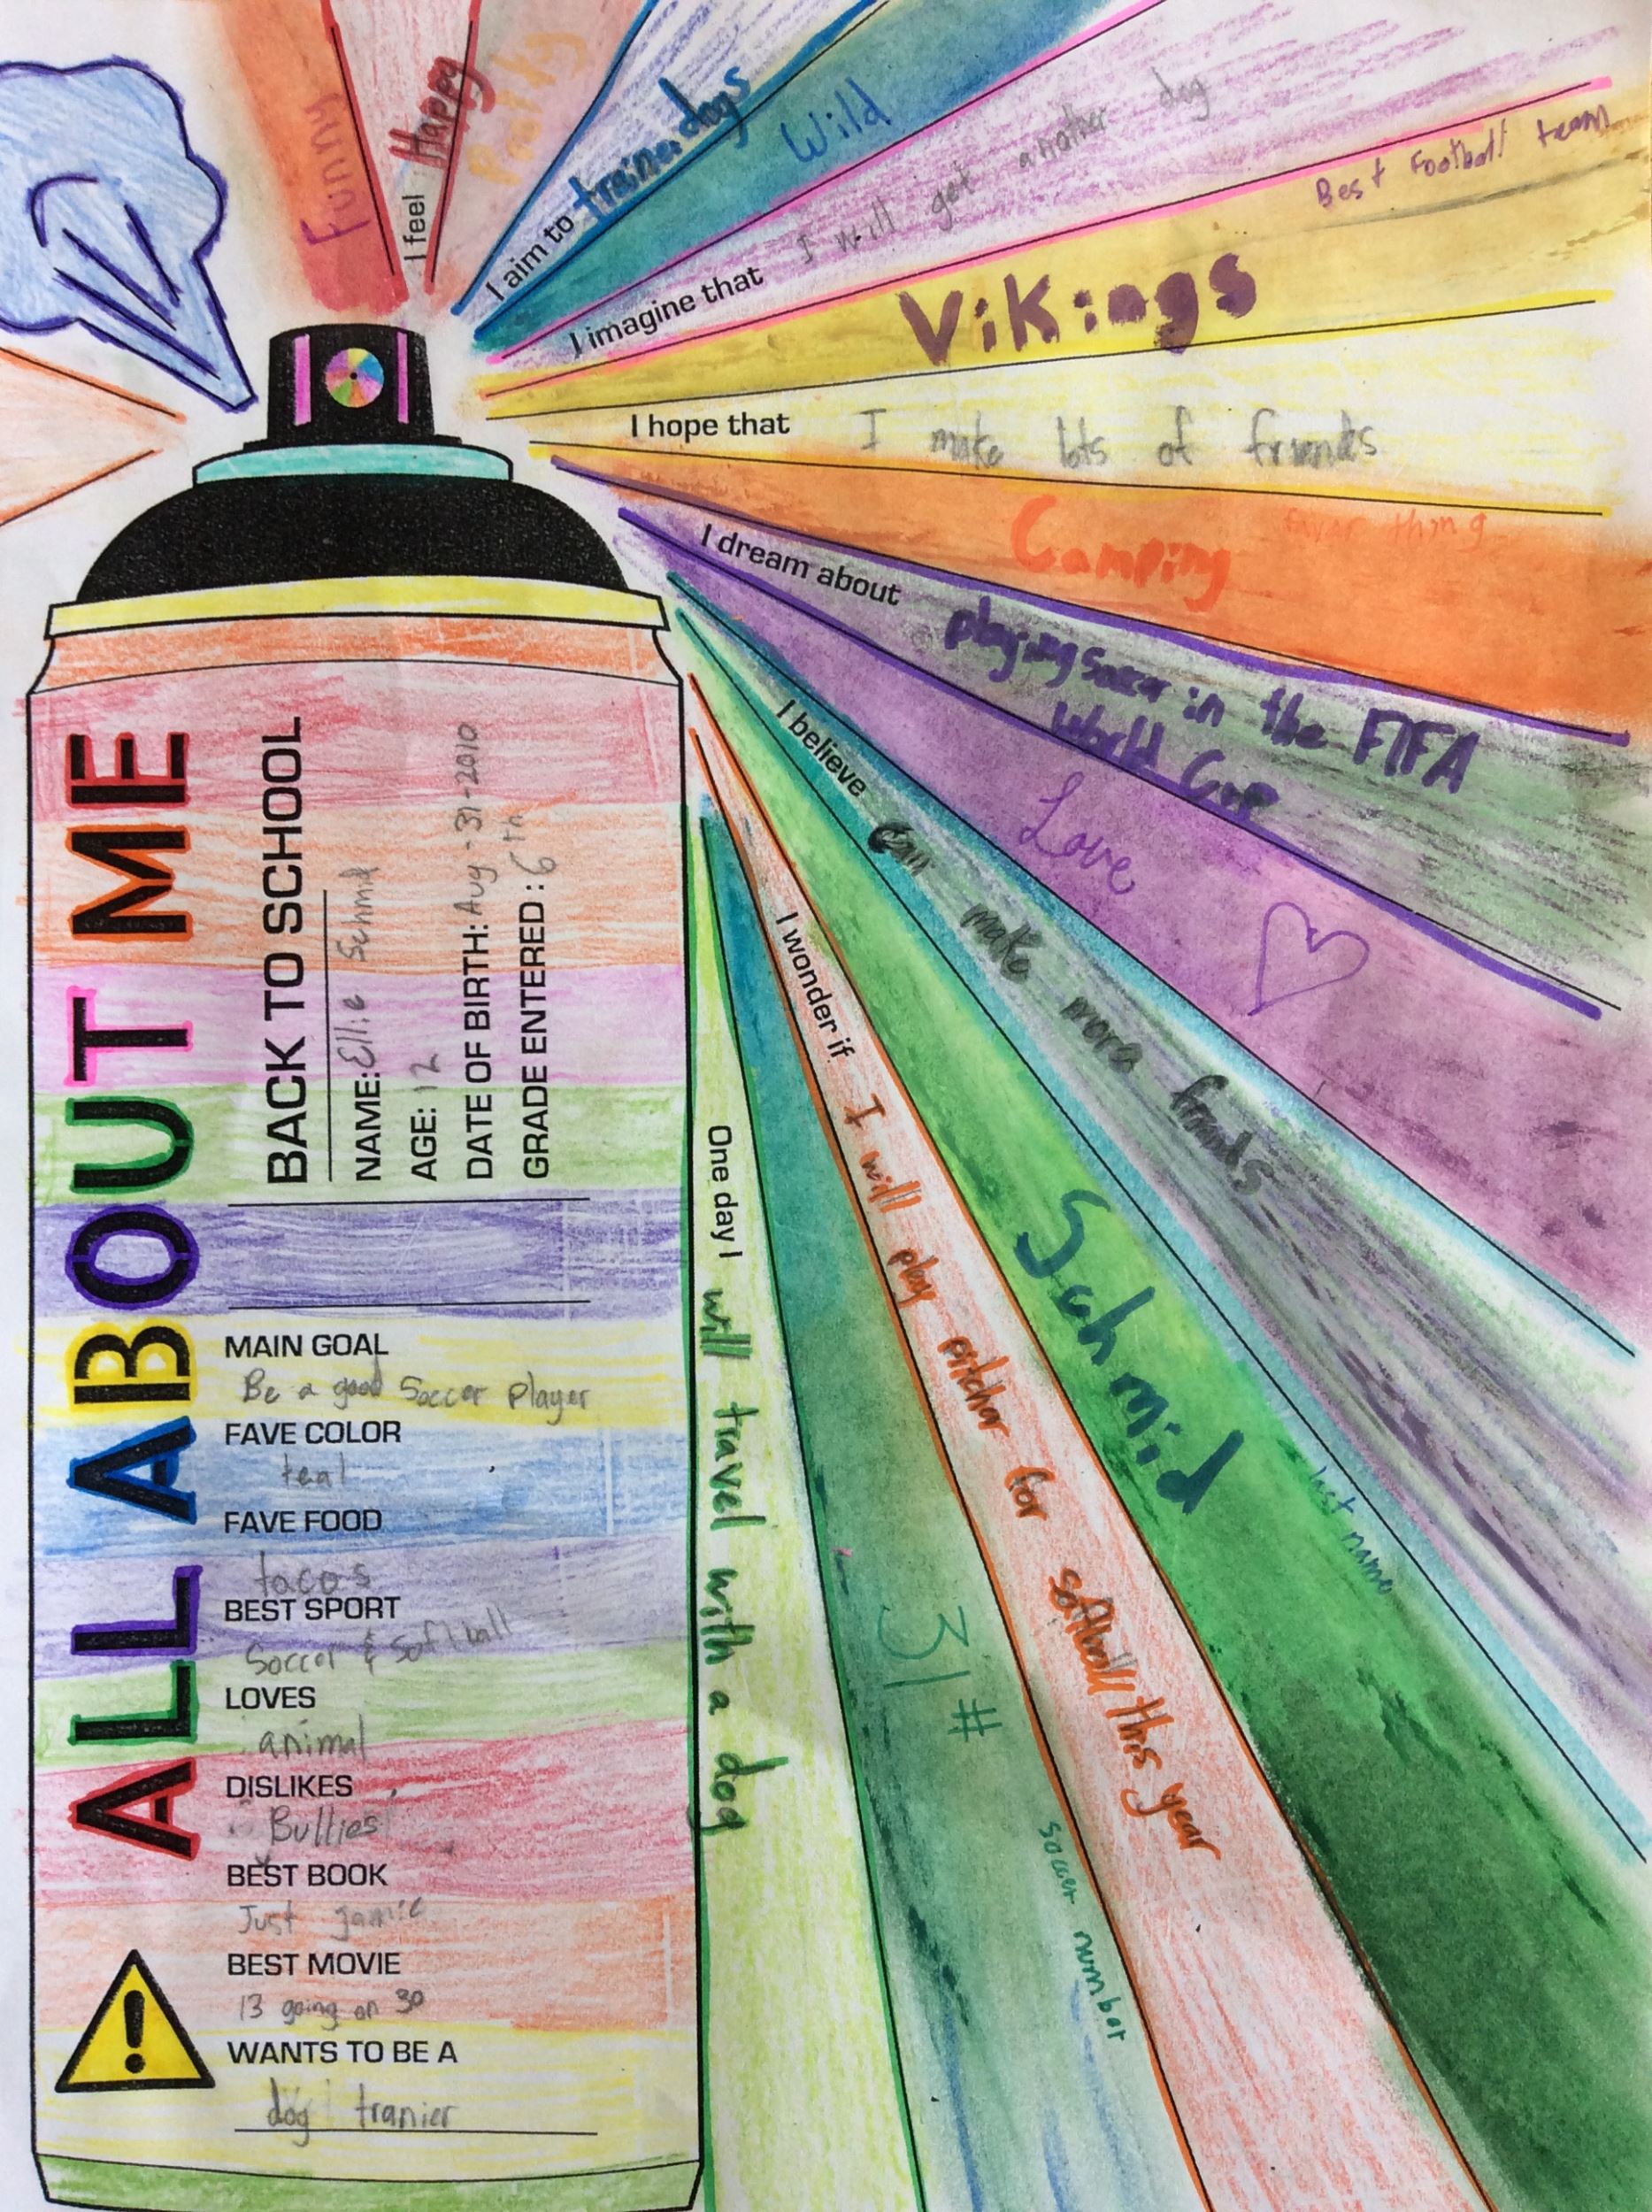 ALL ABOUT ME
BACK TO SCHOOL
NAME: Ellie Schmid
AGE: 12
DATE OF BIRTH: Aug-31-2010
GRADE ENTERED: 6th
MAIN GOAL
Be a good Soccer player
FAVE COLOR
teal
FAVE FOOD
tacos
BEST SPORT
Soccer & Softball
LOVES
animal
DISLIKES
Bullies
BEST BOOK
Just Jamie
BEST MOVIE
13 going on 30
WANTS TO BE A
dog tranier
Funny
I feel Happy
I aim to train dogs
Wild
I imagine that I will get another dog
Best Football team
Vikings
I hope that I make lots of friends
Camping
favor thing
I dream about playing soccer in the FIFA
World Cup
Love
I believe can make more friends
Schmid
last name
I wonder if I will play pitcher for softball this year
31#
soccer number
One day I will travel with a dog